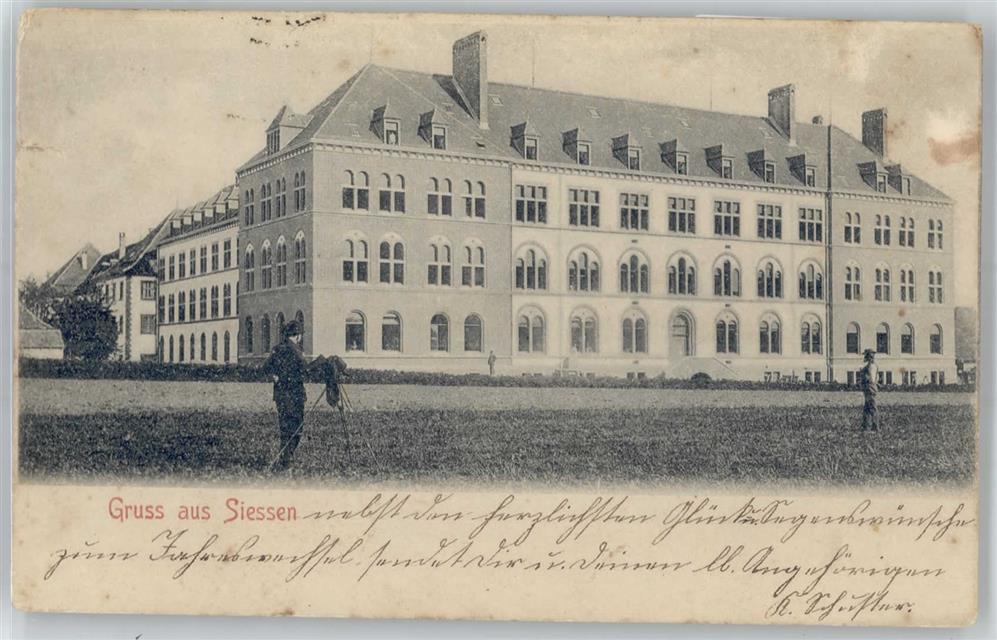 Gruss aus Siessen nebst den herzlichsten Glück u. Segenswünsche
zum Jahreswechsel sendet Dir u. Deinen lb. Angehörigen
K. Schuster.